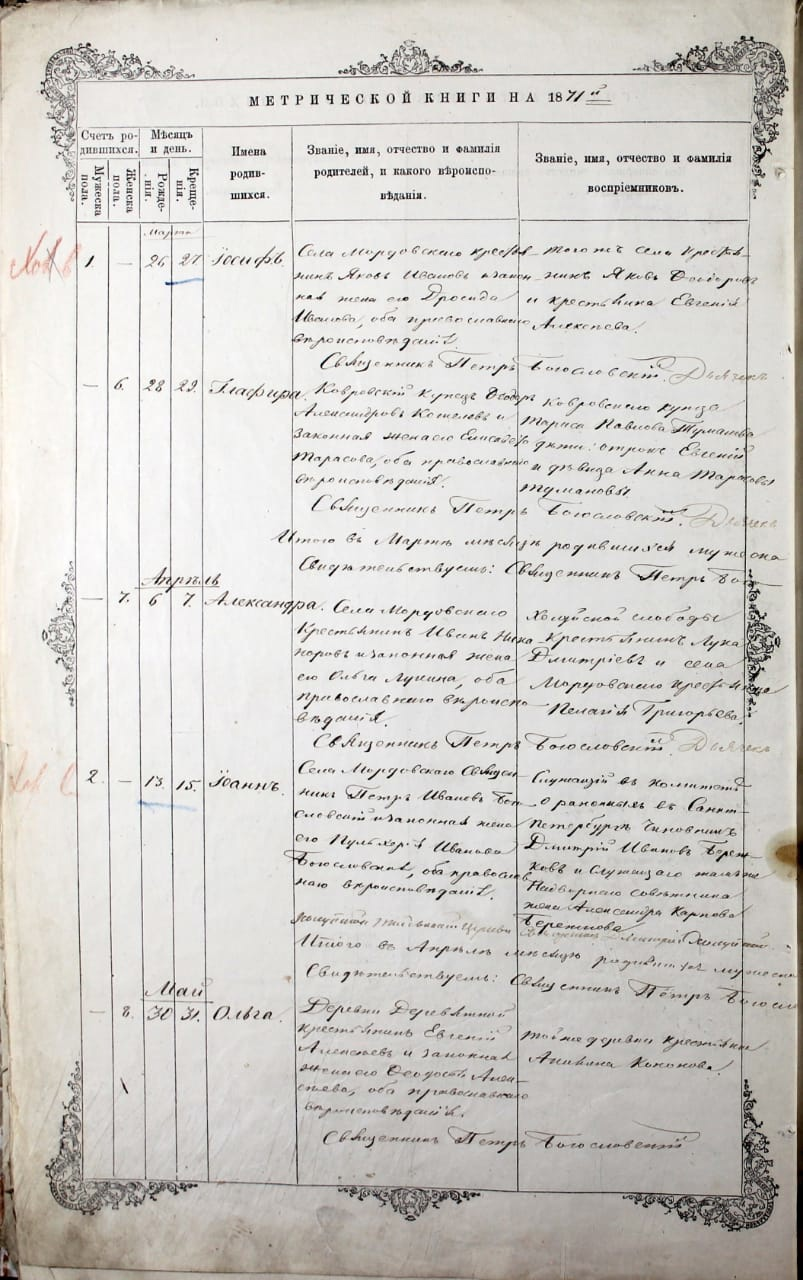 МЕТРИЧЕСКОЙ КНИГИ НА 1871й
Счетъ ро-
дившихся.
Мѣсяцъ
и день.
Имена
родив-
шихся.
Званіе, имя, отчество и фамилія
родителей, и какого вѣроиспо-
вѣданія.
Званіе, имя, отчество и фамилія
воспріемниковъ.
Мужеска
пола.
Женска
пола.
Рожде-
нія.
Креще-
нія.
Марта
1. — 26 27 Іосифъ.
Села Мордовскаго кресть-
нинъ Яковъ Ивановъ и закон-
ная жена его Дросида
Иванова, оба православнаго
вѣроисповѣданія.
тогожъ села крестья-
нинъ Яковъ Ѳеодоровъ
и крестьянка Евгенія
Алексѣева.
Священникъ Петръ Богословскій. Дьячекъ
— 6. 28 29. Глафира.
Ковровскій купецъ Ѳеодоръ
Александровъ Кошелевъ и
законная жена его Елисавета
Тарасова, оба православнаго
вѣроисповѣданія.
Ковровскаго купца
Тараса Павлова Туманова
дѣти: отрокъ Евгеній
и дѣвица Анна Тарасовы
Тумановы
Священникъ Петръ Богословскій. Дьячекъ
Итого въ Мартѣ мѣсяцѣ родившихся мужеска
Свидѣтельствуемъ: Священникъ Петръ Бого
Апрѣль
— 7. 6 7. Александра.
Села Мордовскаго
Крестьянинъ Иванъ Ника
норовъ и законная жена
его Ольга Лукина, оба
православнаго вѣроиспо
вѣданія.
Холуйской слободы
Крестьянинъ Лука
Дмитріевъ и села
Мордовскаго крестьянка
Пелагія Григорьева.
Священникъ Петръ Богословскій. Дьячекъ
2. — 13. 15. Іоаннъ.
Села Мордовскаго Священ-
никъ Петръ Ивановъ Бого
словскій и законная жена
его Пульхерія Иванова
Богословскіе, оба православ
наго вѣроисповѣданія.
Служащій въ комитетѣ
о раненыхъ въ Санкт-
Петербургѣ Чиновникъ
Дмитрій Ивановъ Береж-
ковъ и Служащаго тамъ же
Надворнаго совѣтника
жена Александра Карпова
Бережкова
Итого въ Апрѣлѣ мѣсяцѣ родившихся мужеска
Свидѣтельствуемъ: Священникъ Петръ Богосло
Май
— 8. 30 31. Ольга.
Деревни Деревятной
крестьянинъ Евгеній
Алексѣевъ и законная
жена его Ѳеодосія Алек-
сѣева, оба православнаго
вѣроисповѣданія.
той же деревни крестьянка
Акилина Кононова.
Священникъ Петръ Богословскій